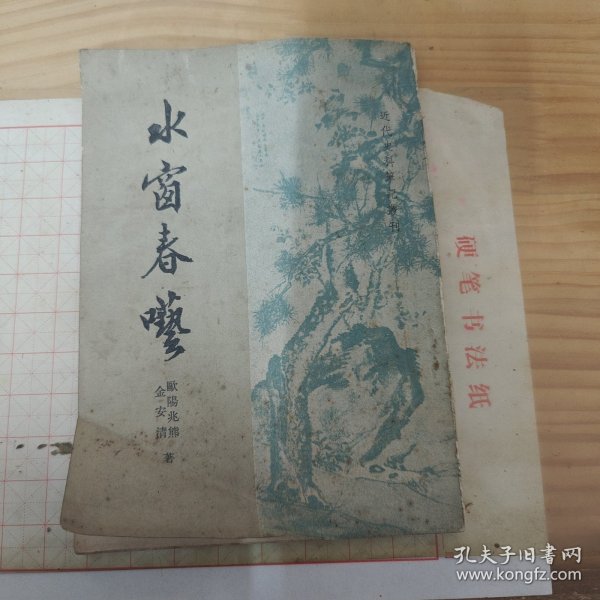 水窗春囈
歐陽兆熊
金安清 著
近代史料筆記叢刊
硬笔书法纸
孔夫子旧书网
www.kongfz.com